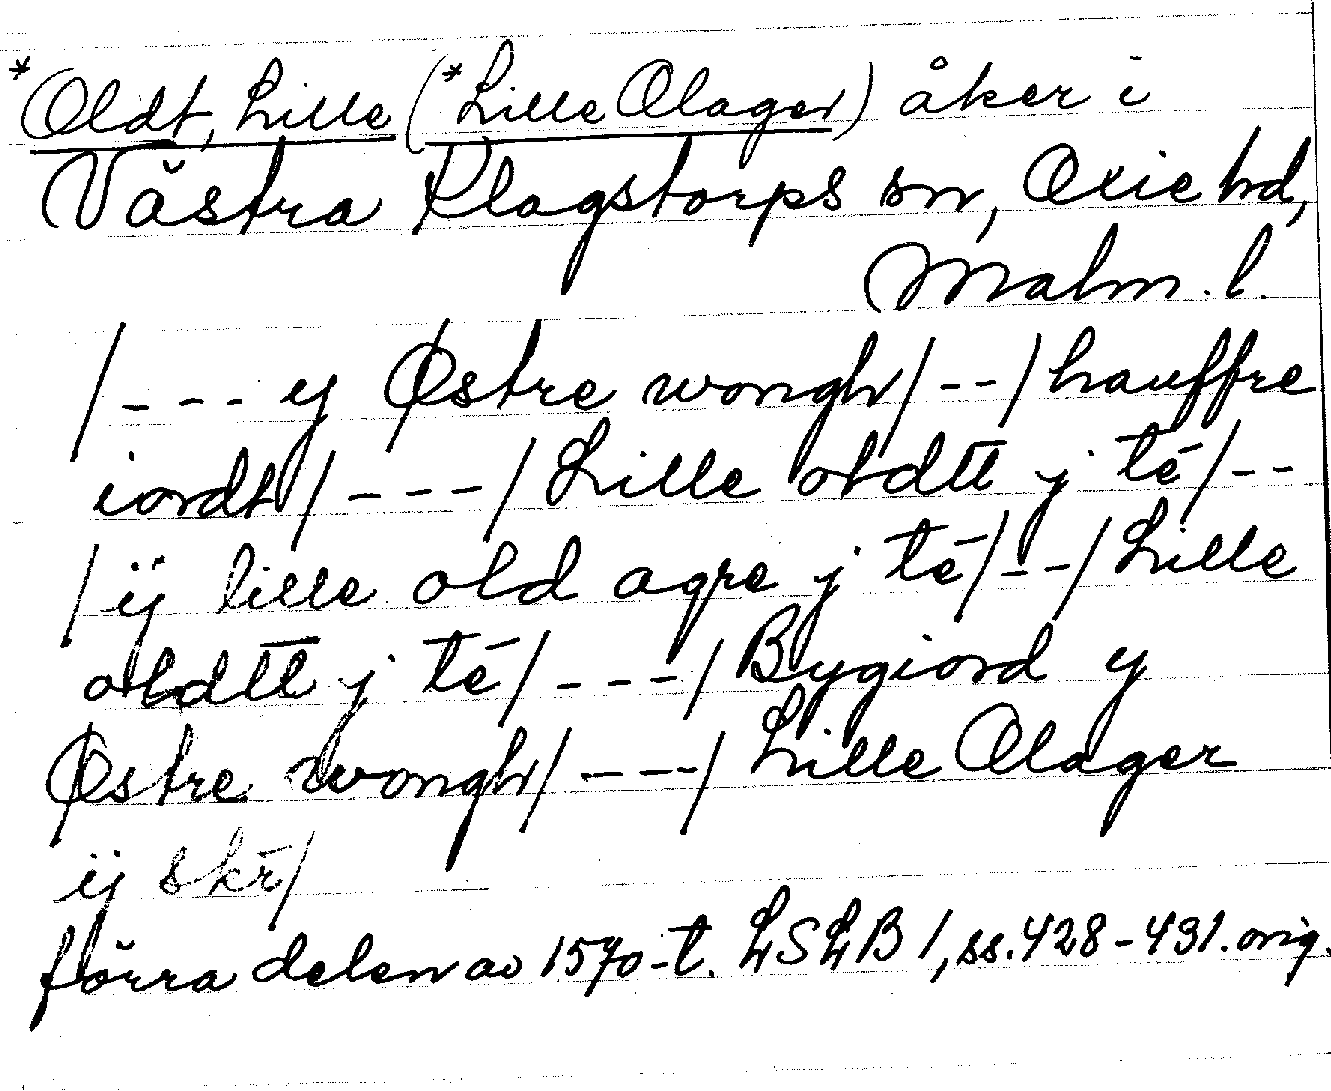 *Oldt, Lille (*Lille Olager) åker i
Västra Klagstorps sn, Oxie hd,
Malm. l.
/---y Østre wongh/--/hauffre
iordt/---/Lille oldtt j té/--
/ij lille old agre j té/--/Lille
oldtt j té/---/Bygiord y
Østre wongh/---/Lille Olager
ij skr̄/
förra delen av 1570-t. LSLB 1, ss. 428-431. orig.